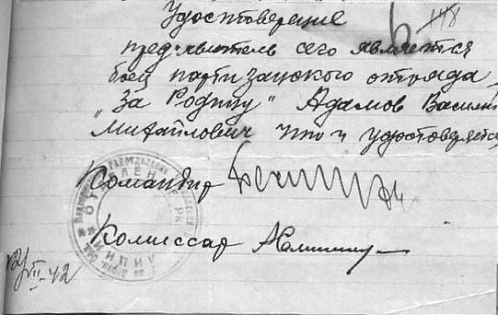 Удостоверение
148
предъявитель сего является
боец партизанского отряда
"За Родину" Адамов Василий
Михайлович что и удостоверяется
Командир
Комиссар
VII-42